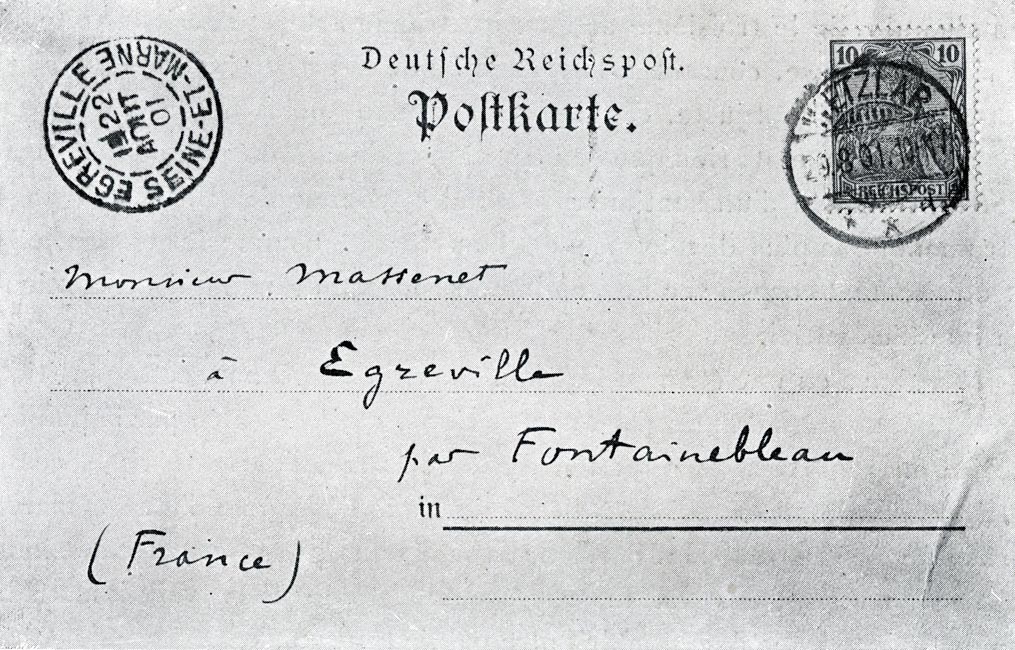 Deutsche Reichspost.
Postkarte.
EGREVILLE SEINE-ET-MARNE
22
AOUT
01
10 10
WETZLAR
8.01.10-11
REICHSPOST
Monsieur Massenet
à Egreville
par Fontainebleau
in
(France)